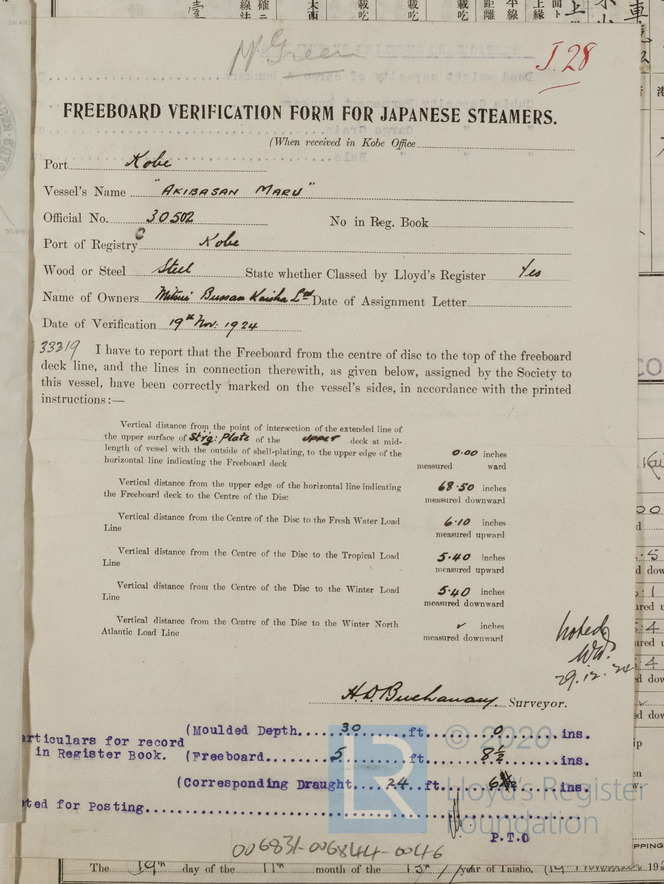 W. Green
J. 28
FREEBOARD VERIFICATION FORM FOR JAPANESE STEAMERS.
(When received in Kobe Office
Port Kobe
Vessel's Name "AKIBASAN MARU"
Official No. 30502 No in Reg. Book
Port of Registry Kobe
Wood or Steel Steel State whether Classed by Lloyd's Register Yes
Name of Owners Mitsui Bussan Kaisha Ltd Date of Assignment Letter
Date of Verification 19th Nov: 1924
33219 I have to report that the Freeboard from the centre of disc to the top of the freeboard
deck line, and the lines in connection therewith, as given below, assigned by the Society to
this vessel, have been correctly marked on the vessel's sides, in accordance with the printed
instructions:—
Vertical distance from the point of intersection of the extended line of
the upper surface of Strg: Plate of the UPPER deck at mid-
length of vessel with the outside of shell-plating, to the upper edge of the
horizontal line indicating the Freeboard deck
0.00 inches
measured ward
Vertical distance from the upper edge of the horizontal line indicating
the Freeboard deck to the Centre of the Disc
68.50 inches
measured downward
Vertical distance from the Centre of the Disc to the Fresh Water Load
Line
6.10 inches
measured upward
Vertical distance from the Centre of the Disc to the Tropical Load
Line
5.40 inches
measured upward
Vertical distance from the Centre of the Disc to the Winter Load
Line
5.40 inches
measured downward
Vertical distance from the Centre of the Disc to the Winter North
Atlantic Load Line
✓ inches
measured downward
Noted
29.12.24
H.D. Buchanan Surveyor.
articulars for record (Moulded Depth 30 ft 0 ins.
in Register Book. (Freeboard 5 ft 8½ ins.
(Corresponding Draught 24 ft 6 ins.
ted for Posting
P.T.O
© 2020
Lloyd's Register
Foundation
006831-006844-0046
The 19th day of the 11th month of the 13th year of Taisho. (19 November 19